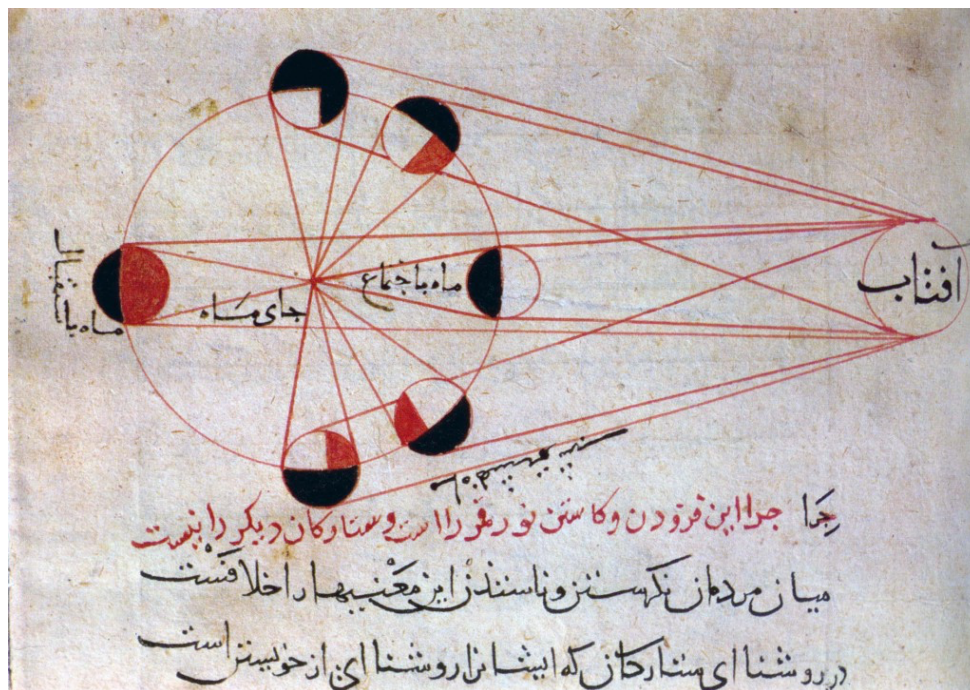 افتاب
ماه باجتماع
جای ماه
ماه باستقبال
چرا چرا این فزودن و کاستن نور قمر را است و ستارکان دیکر را نیست
میان مردمان نکرستن و ناستندن این معنیها را خلافست
در روشنا ای ستارکان که ایشانرا روشنا ای از خویشتن است